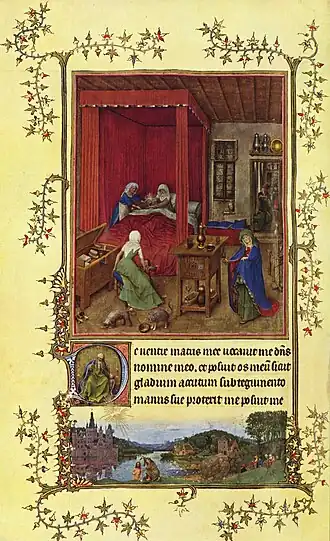 De ventre matris mee vocavit me dñs
nomine meo, et posuit os meũ sicut
gladium acutum sub tegumento
manus sue protexit me posuit me